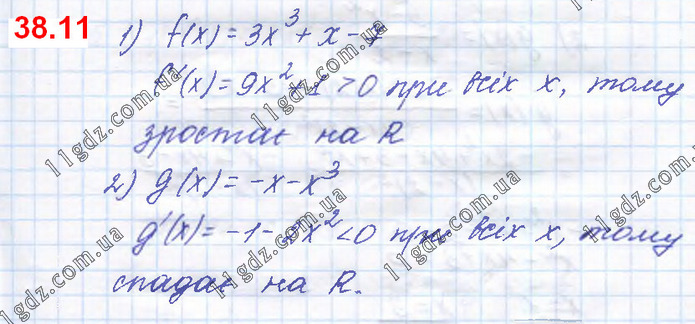 38.11
1) f(x) = 3x³ + x -
f'(x) = 9x² + 1 > 0 при всіх x, тому
зростає на R
2) g(x) = -x - x³
g'(x) = -1 - 3x² < 0 при всіх x, тому
спадає на R.
11gdz.com.ua
11gdz.com.ua
11gdz.com.ua
11gdz.com.ua
11gdz.com.ua
11gdz.com.ua